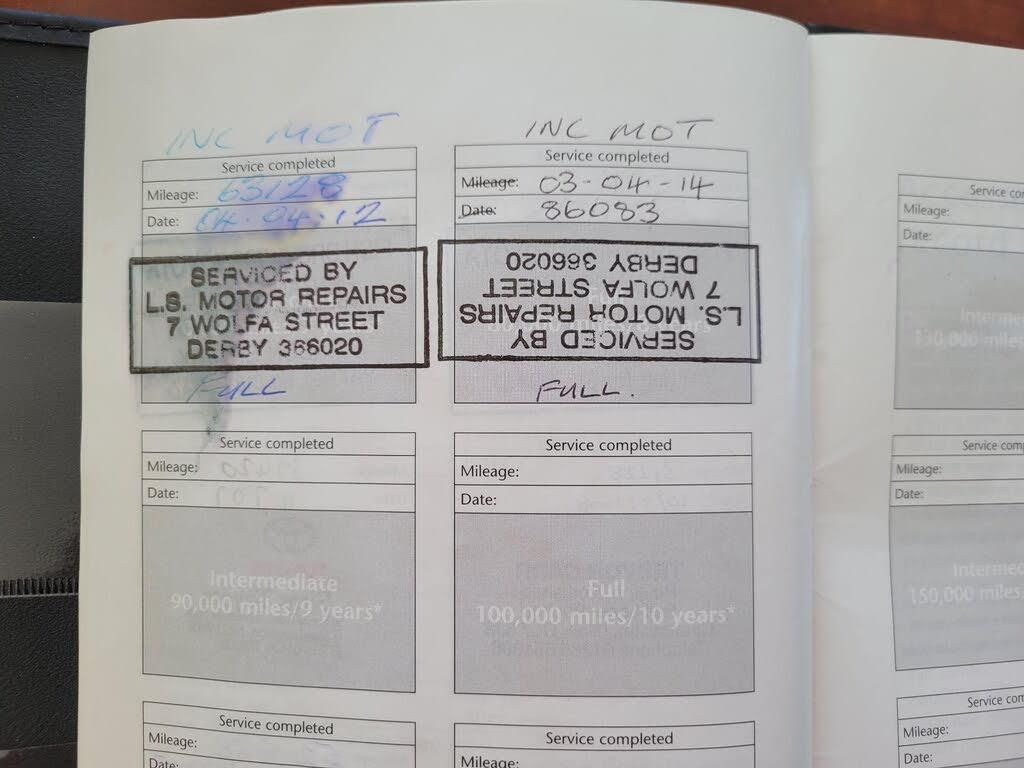 INC MOT
Service completed
Mileage: 63128
Date: 04·04·12
SERVICED BY
L.S. MOTOR REPAIRS
7 WOLFA STREET
DERBY 366020
FULL
INC MOT
Service completed
Mileage: 03-04-14
Date: 86083
SERVICED BY
L.S. MOTOR REPAIRS
7 WOLFA STREET
DERBY 366020
FULL.
Service completed
Mileage:
Date:
Intermediate
90,000 miles/9 years*
Service completed
Mileage:
Date:
Full
100,000 miles/10 years*
Service completed
Mileage:
Date:
Service completed
Mileage:
Date:
Service com
Mileage:
Date:
130,000 miles
Service com
Mileage:
Date:
150,000 miles
Service com
Mileage:
Date: